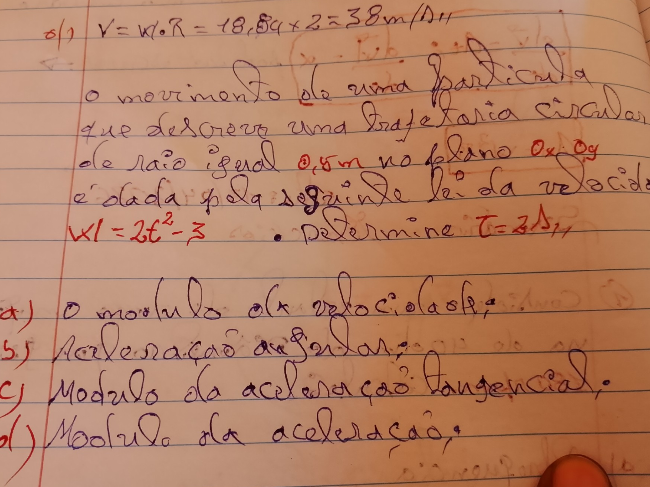 d) V = W.R = 18,84 x 2 = 38 m/s,,
O movimento de uma particula
que descreve uma trajetoria circular
de raio igual 0,5m no plano Ox Oy
é dada pela seguinte lei da velocida
W = 2t² - 3 . Determine t = 2s,,
a) O modulo da velocidade;
b) Aceleração angular;
c) Modulo da aceleração tangencial;
d) Modulo da aceleração;